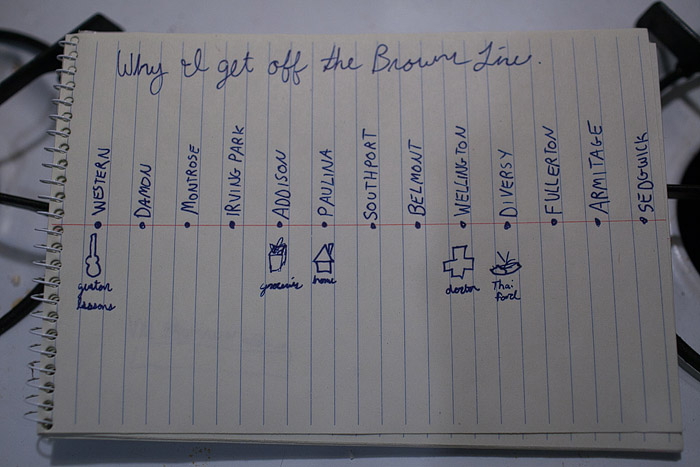 Why I get off the Brown Line.
WESTERN
DAMON
MONTROSE
IRVING PARK
ADDISON
PAULINA
SOUTHPORT
BELMONT
WELLINGTON
DIVERSY
FULLERTON
ARMITAGE
SEDGWICK
guitar
lessons
groceries
home
doctor
Thai
food